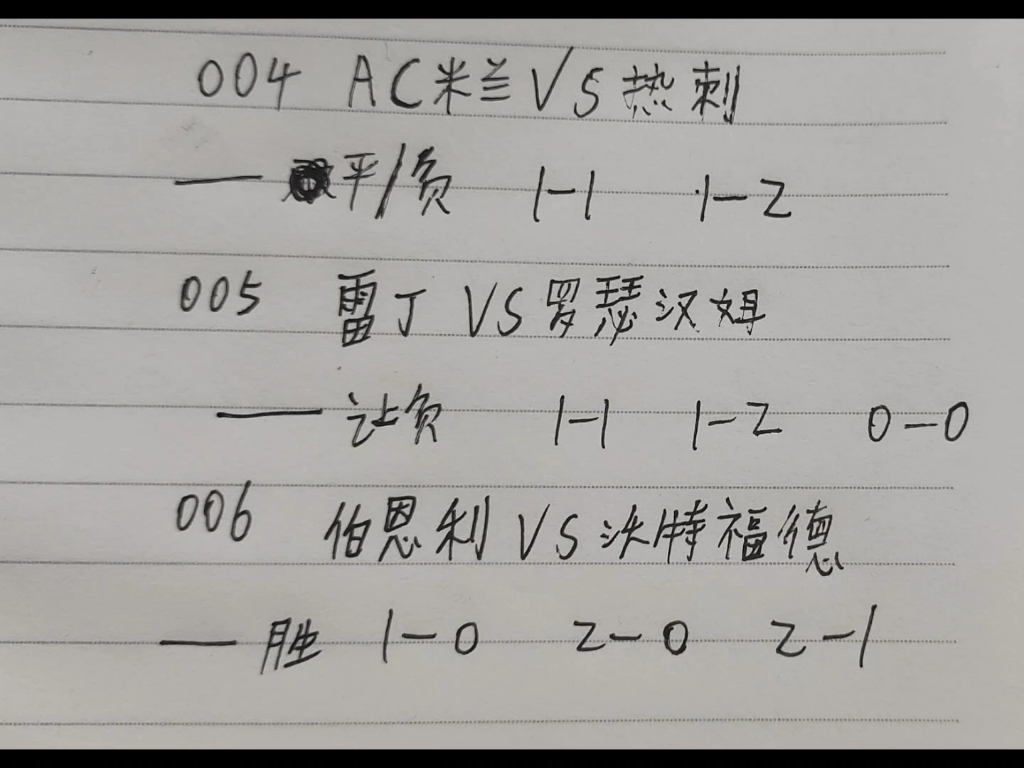 004 AC米兰VS热刺
— 平/负 1-1 1-2
005 雷丁VS罗瑟汉姆
— 让负 1-1 1-2 0-0
006 伯恩利VS沃特福德
— 胜 1-0 2-0 2-1